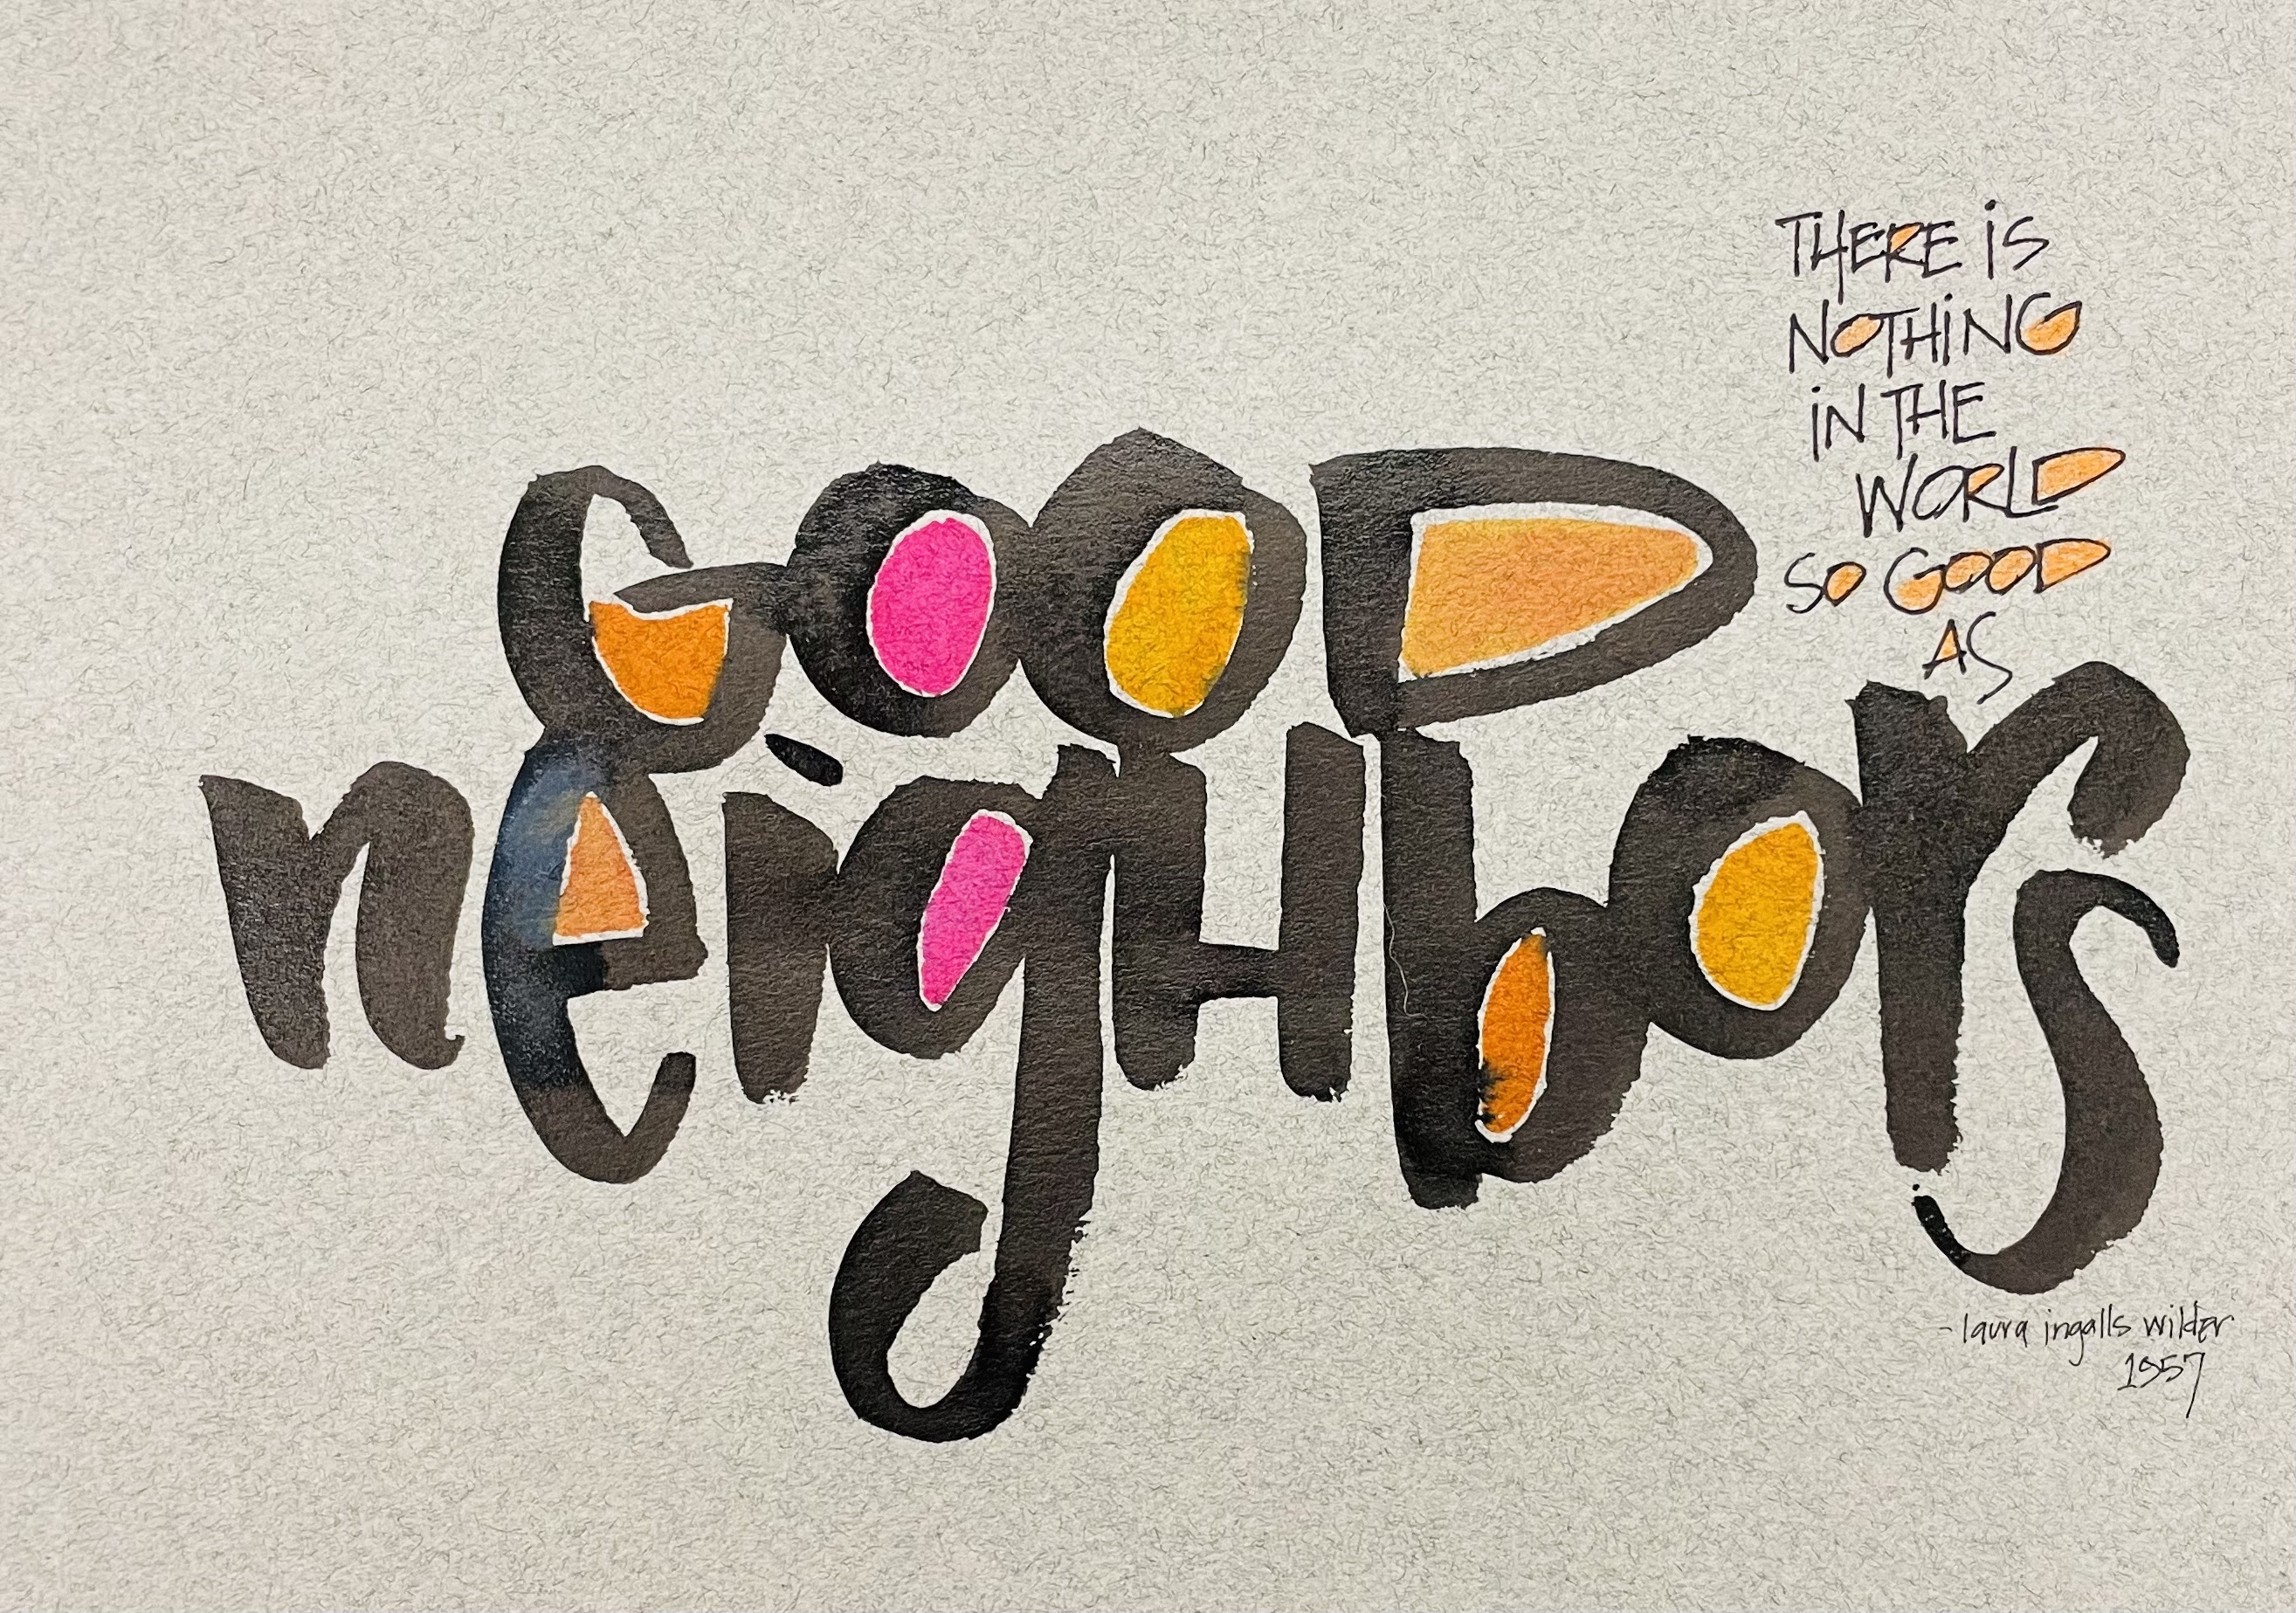 THERE iS
NOTHiNG
iN THE
WORLD
SO GOOD
AS
GOOD
neigHbors
-laura ingalls wilder
1957